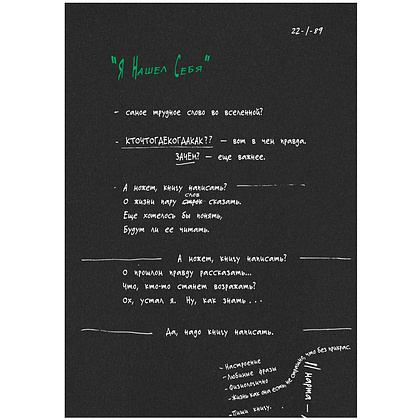 22-1-89
"Я Нашел Себя"
- самое трудное слово во вселенной?
- КТОЧТОГДЕКОГДАКАК?? - вот в чем правда.
ЗАЧЕМ? - еще важнее.
А может, книгу написать?
слов
О жизни пару строк сказать.
Еще хотелось бы понять,
Будут ли ее читать.
А может, книгу написать?
О прошлом правду рассказать...
Что, кто-то станет возражать?
Ох, устал я. Ну, как знать...
Да, надо книгу написать.
- Настроение
- Любимые фразы
- Физиологично
- Жизнь как она есть, не страшно, что без прикрас.
- Пиши книгу.
марта